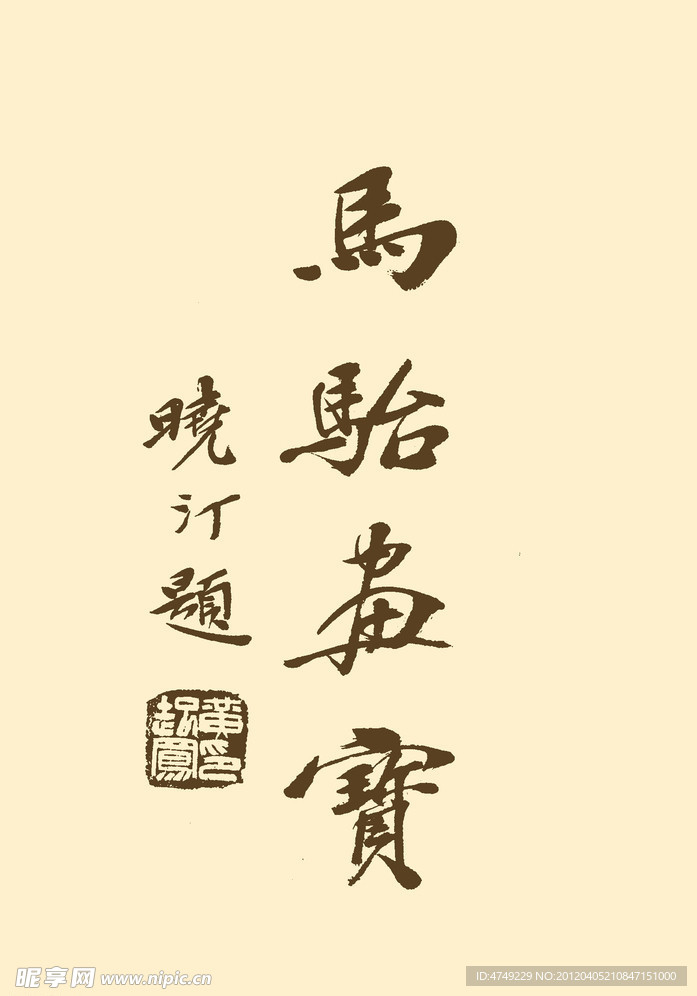 馬駘畫寶
曉汀題
黃印起鳳
昵享网 www.nipic.cn
ID:4749229 NO:20120405210847151000